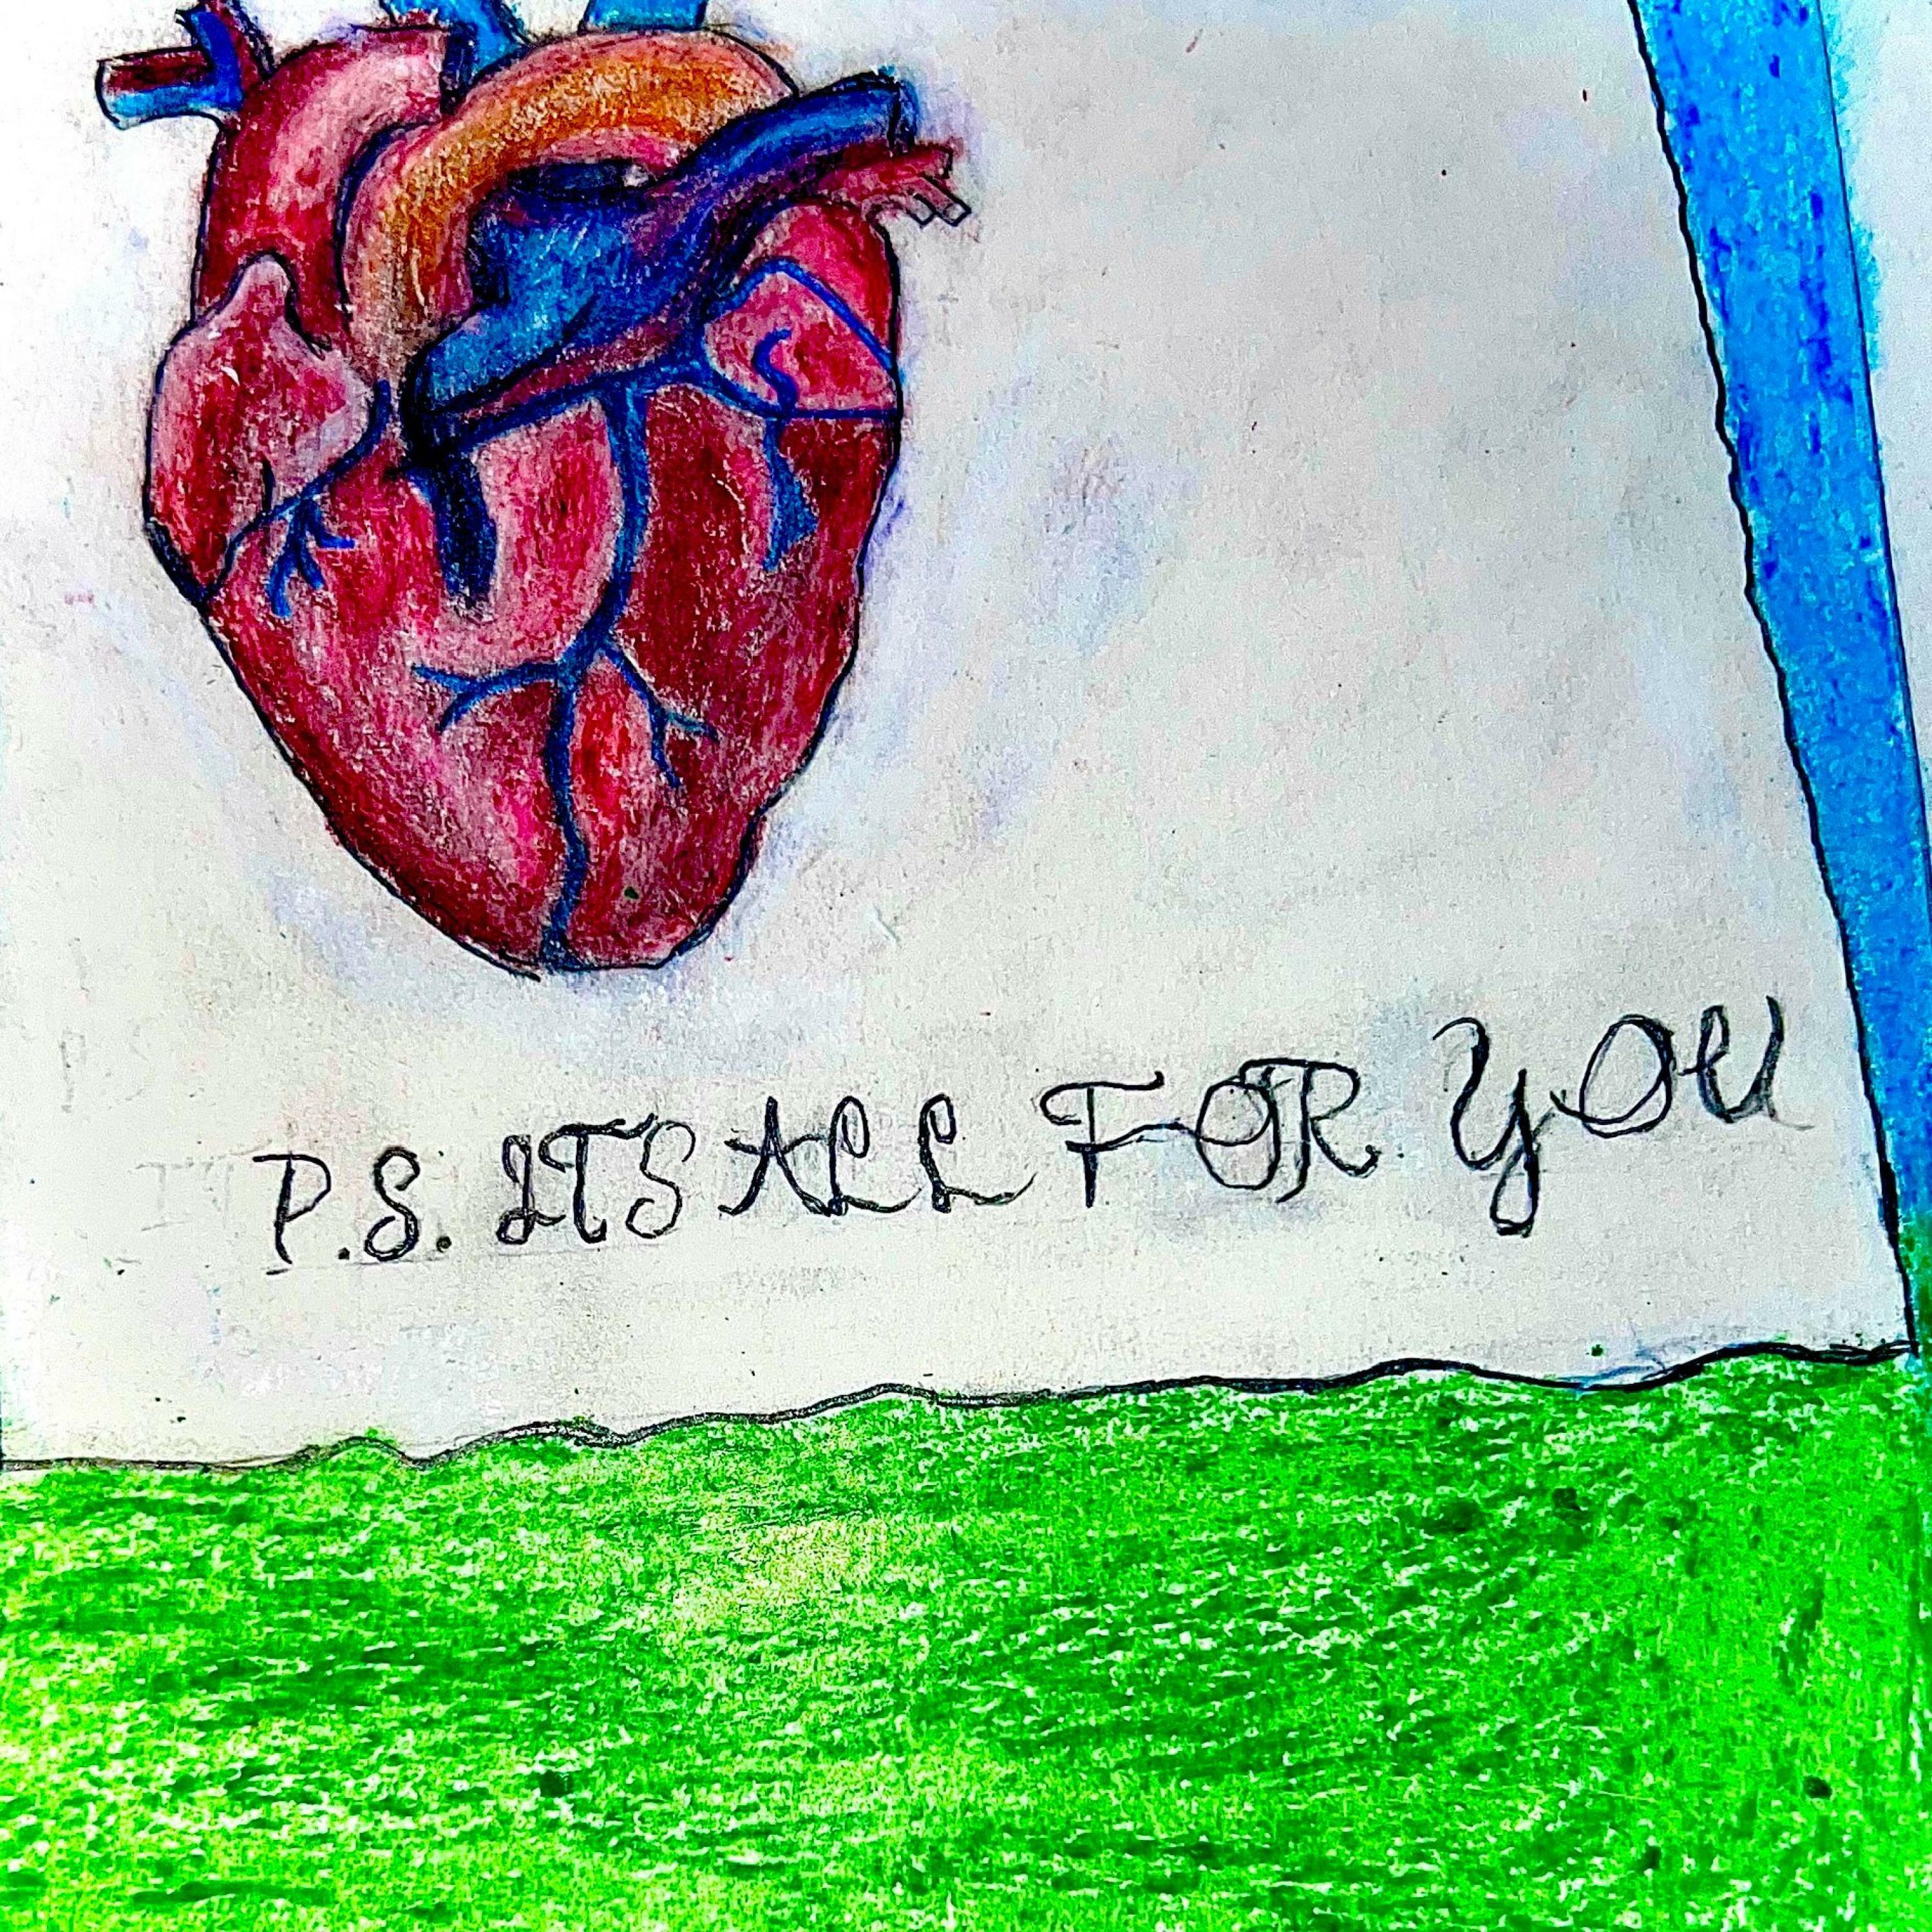 P.S. ITS ALL FOR YOU